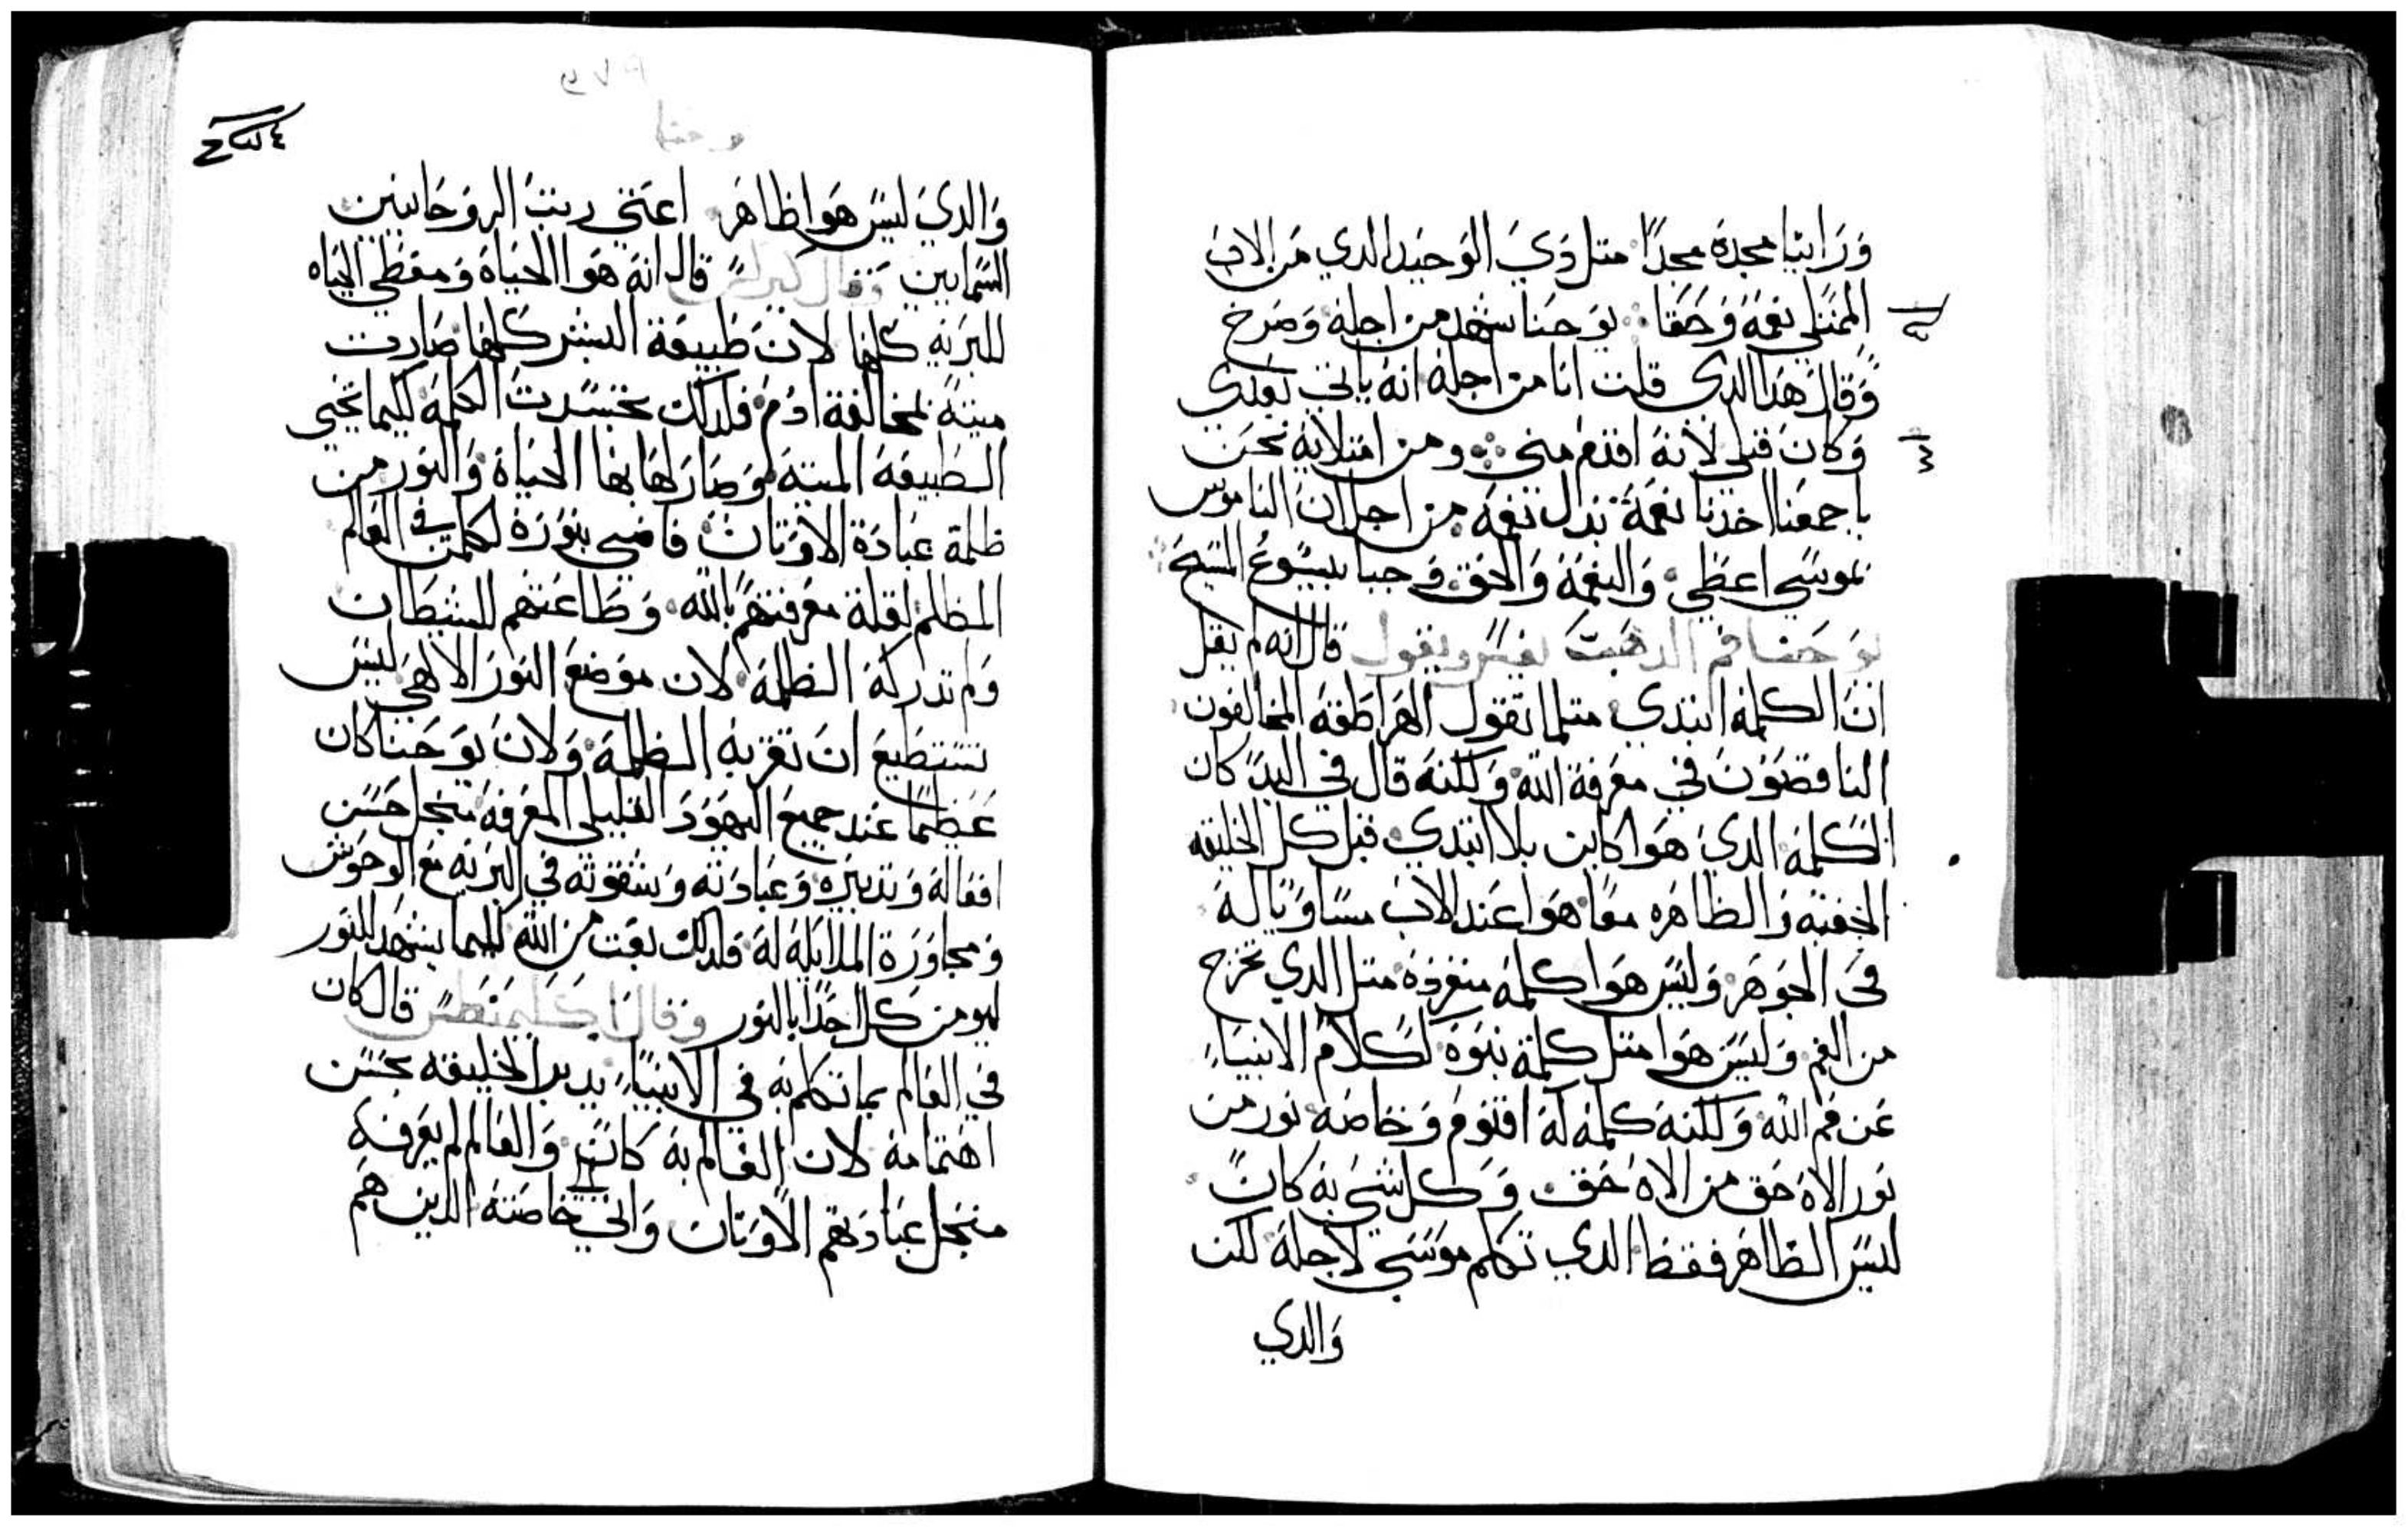 وراينا مجده مجدا متل دي الوحيد الدي من الاب
الممتلي نعمه وحقا يوحنا شهد من اجله وصرخ
وقال هدا الدي قلت انا من اجله انه ياتي بعدي
وكان قبلي لانه اقدم مني ومن امتلايه نحن
باجمعنا اخدنا نعمة بدال نعمه من اجل ان الناموس
بموسي اعطي والنعمة والحق وجبا بيسوع المسيح
يوحنا فم الدهب يفسر ويقول قال انه لم يقل
ان الكلمه ابتدي متلما تقول الهراطقه المخالفون
الناقصون في معرفة الله ولكنه قال في البد كان
الكلمه الدي هوا كاين بلا ابتدي قبل كل الخليقه
الخفيه والظاهره معا هوا عند الاب مساويا له
في الجوهر وليس هوا كلمه منفرده متل الدي تخرج
من الفم وليس هوا متل كلمة نبوه لكلام الانبياء
عن فم الله ولكنه كلمه له اقنوم وخاصه نور من
نور الاه حق من الاه حق وكل شي به كان
ليس الظاهر فقط الدي تكلم موسي لاجله لكن
والدي
والدي ليس هوا ظاهر اعني ريت الروحانيين
السمايين وقال كيرلس قال انه هوا الحياة ومعطي الحياه
للبريه كلها لان طبيعة البشر كلها صارت
ميتة لمخالفة ادم فلدلك تجسدت الكلمه لكيما تحيي
الطبيعه الميته وصار لها بها الحياة والنور من
ظلمة عبادة الاوتان فاضي بنوره لكلمن في العالم
المظلم لقلة معرفتهم بالله وطاعتهم للشيطان
ولم تدركه الظلمه لان موضع النور الالاهي ليس
تستطيع ان تقربه الظلمه ولان يوحنا كان
عظيما عند جميع اليهود القليلي المعرفه منجل حسن
افعاله وتدبيره وعبادته وشقوته في البريه مع الوحوش
ومجاورة الملايكه له فلدلك بعت من الله لكيما يشهد للنور
ليومن كل احدا بالنور وقال اكليمنطس قال كان
في العالم بما تكلم به في الانبياء يدبر الخليقه بحسن
اهتمامه لان العالم به كان والعالم لم يعرفه
منجل عبادتهم الاوتان والي خاصته الدين هم